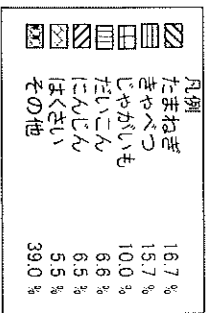 凡例
たまねぎ 16.7 %
きゃべつ 15.7 %
じゃがいも 10.0 %
だいこん 6.6 %
にんじん 6.5 %
はくさい 5.5 %
その他 39.0 %